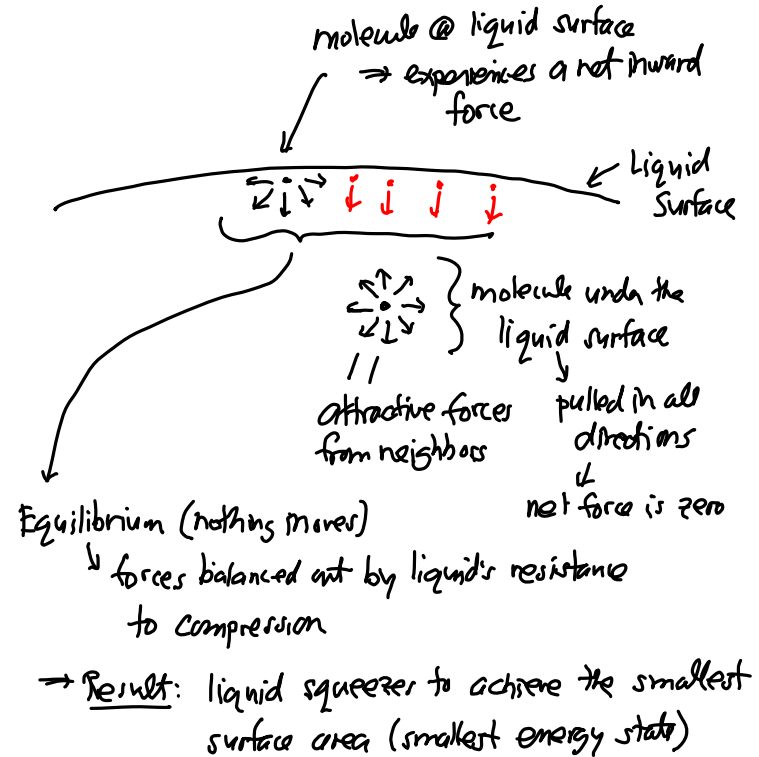 molecule @ liquid surface
⇒ experiences a net inward
force
Liquid
Surface
molecule under the
liquid surface
attractive forces
from neighbors
pulled in all
directions
net force is zero
Equilibrium (nothing moves)
forces balanced out by liquid's resistance
to compression
⇒ Result: liquid squeezes to achieve the smallest
surface area (smallest energy state)